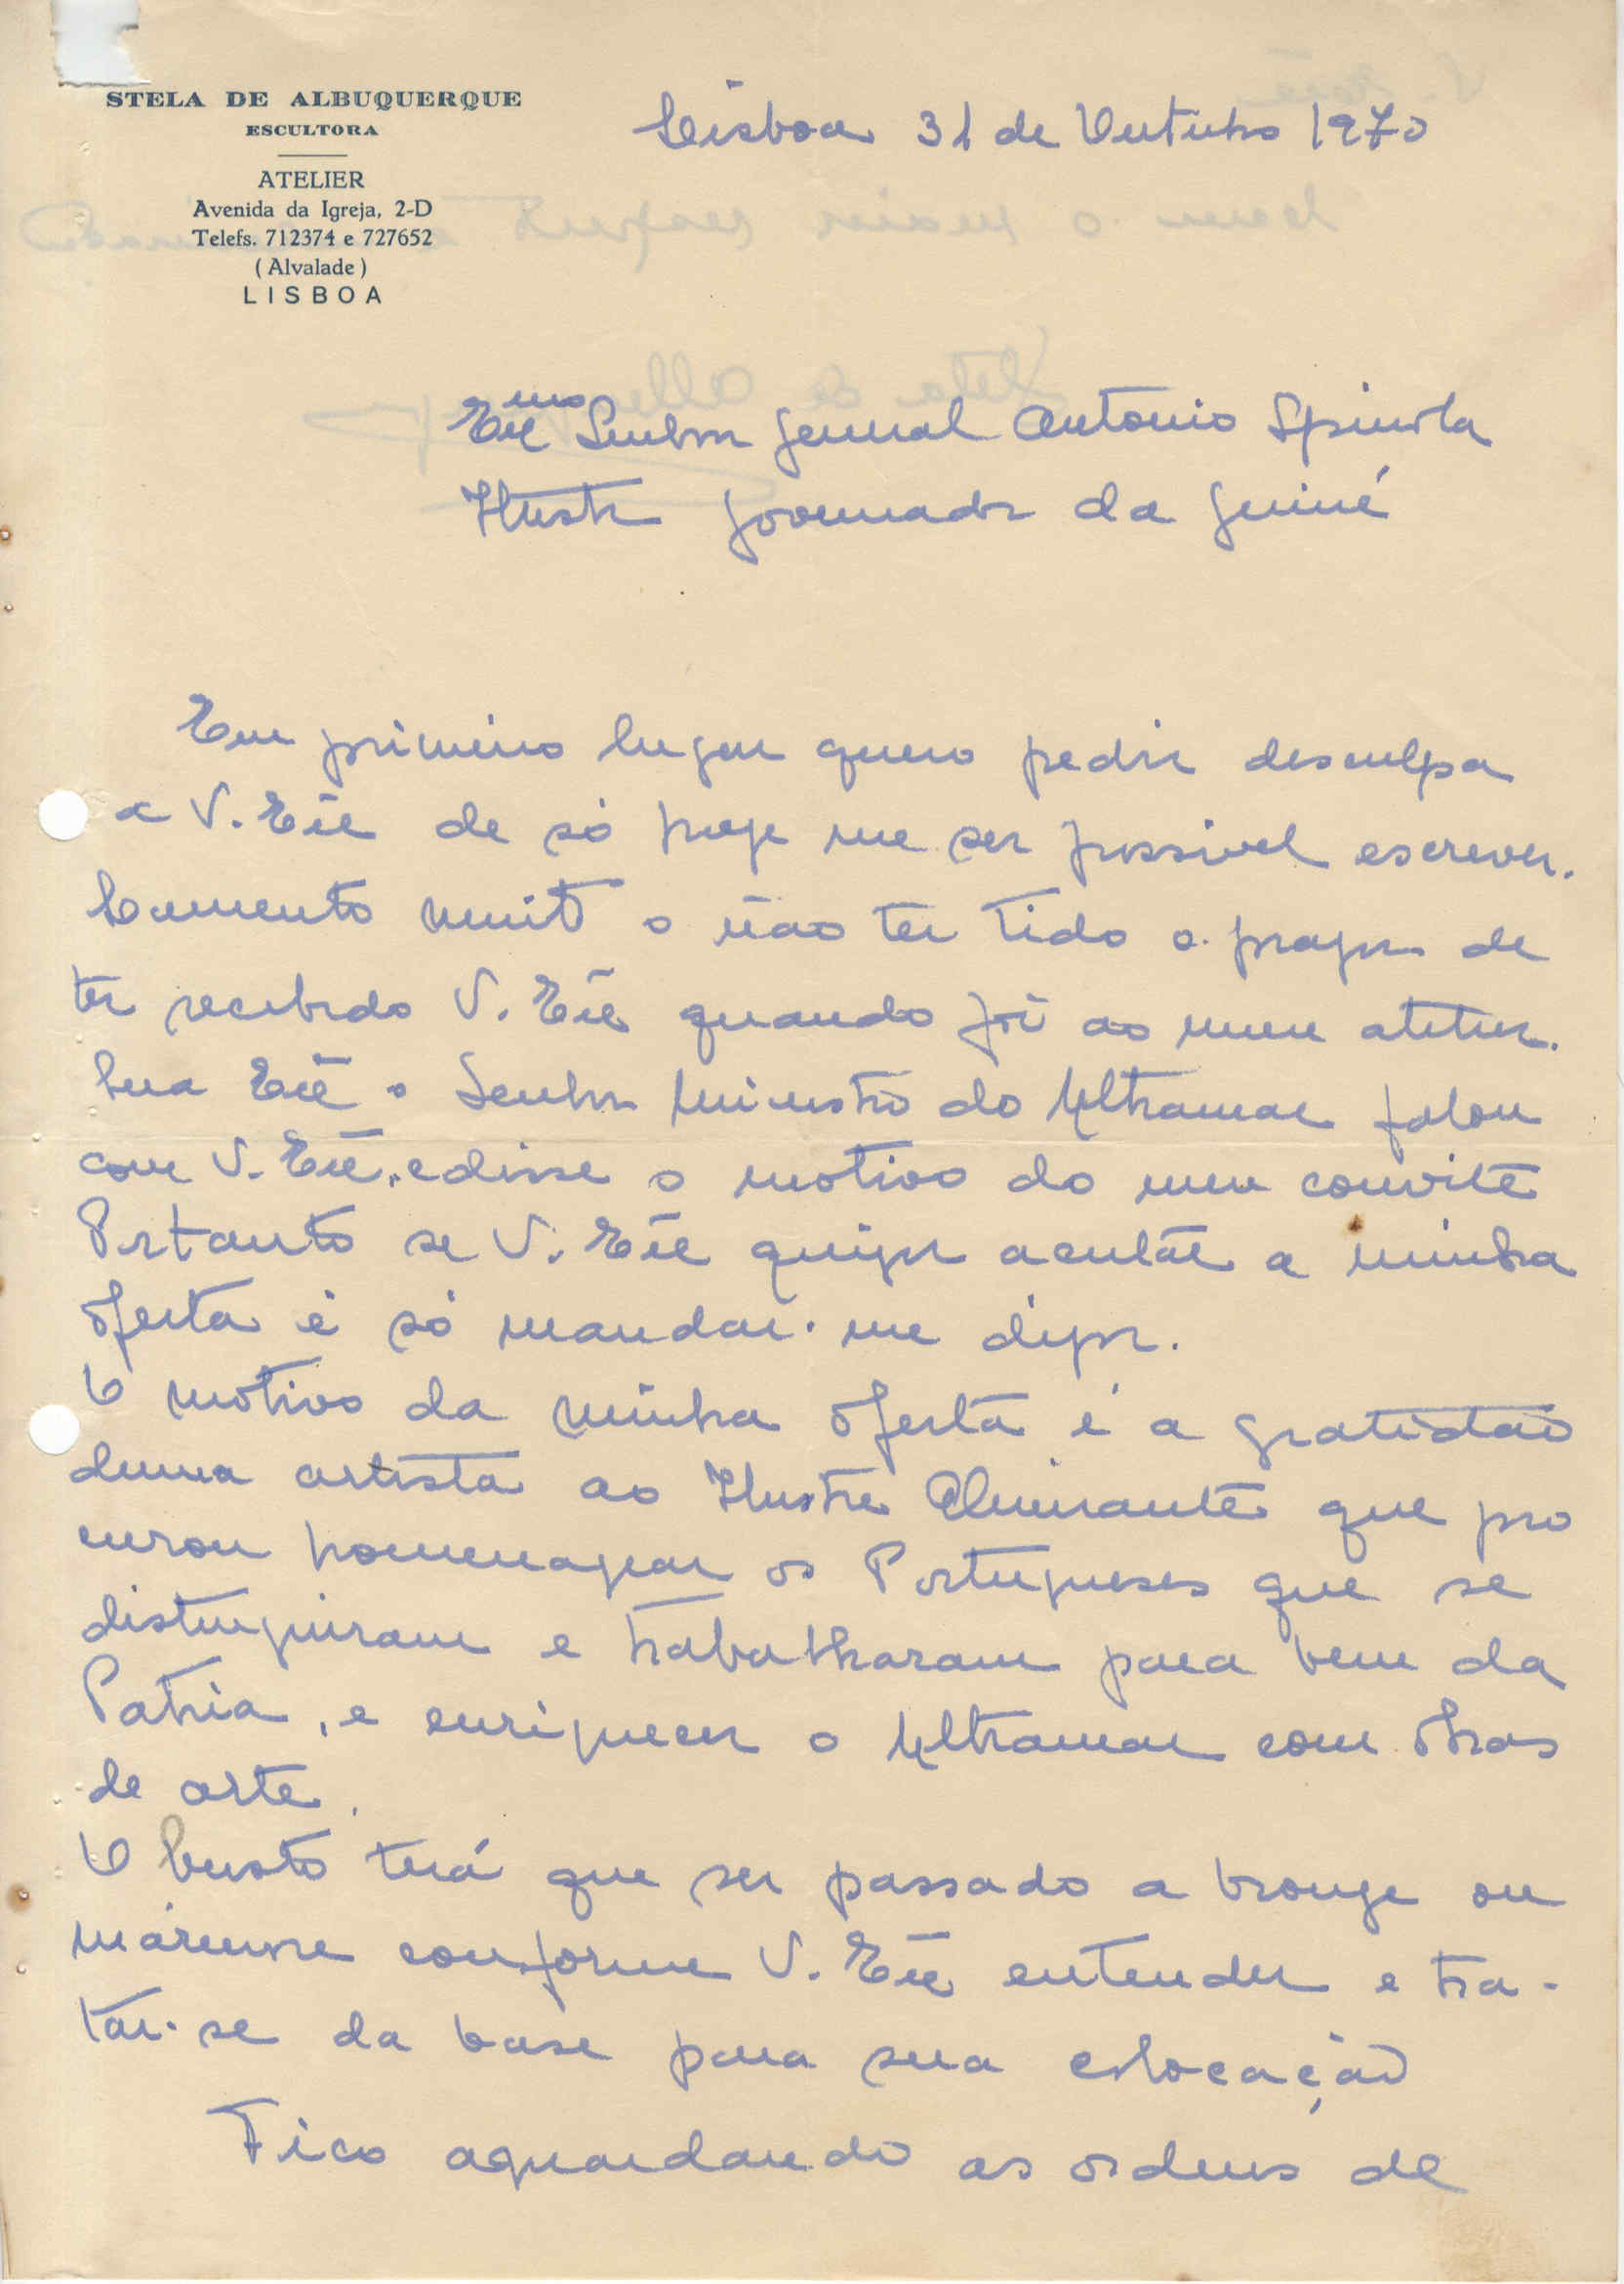 STELA DE ALBUQUERQUE
ESCULTORA
ATELIER
Avenida da Igreja, 2-D
Telefs. 712374 e 727652
(Alvalade)
LISBOA
Lisboa 31 de Outubro 1970
Exmo Senhor General Antonio Spinola
Ilustre Governador da Guiné
Em primeiro lugar quero pedir desculpa
a V. Exª de só hoje me ser possivel escrever.
Lamento muito o não ter tido o prazer de
ter recebido V. Exª quando foi ao meu atelier.
Sua Exª o Senhor Ministro do Ultramar falou
com V. Exª, e disse o motivo do meu convite
Portanto se V. Exª quizer aceitar a minha
oferta é só mandar-me dizer.
O motivo da minha oferta é a gratidão
duma artista ao Ilustre Almirante que pro
curou homenagear os Portugueses que se
distinguiram e trabalharam para bem da
Patria, e enriquecer o Ultramar com obras
de arte.
O busto terá que ser passado a bronze ou
mármore conforme V. Exª entender e tra-
tar-se da base para sua colocação
Fico aguardando as ordens de